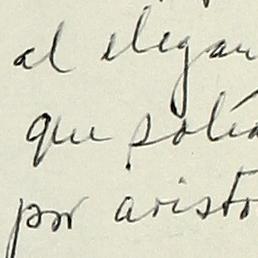 al elegan
que solía
por aristo